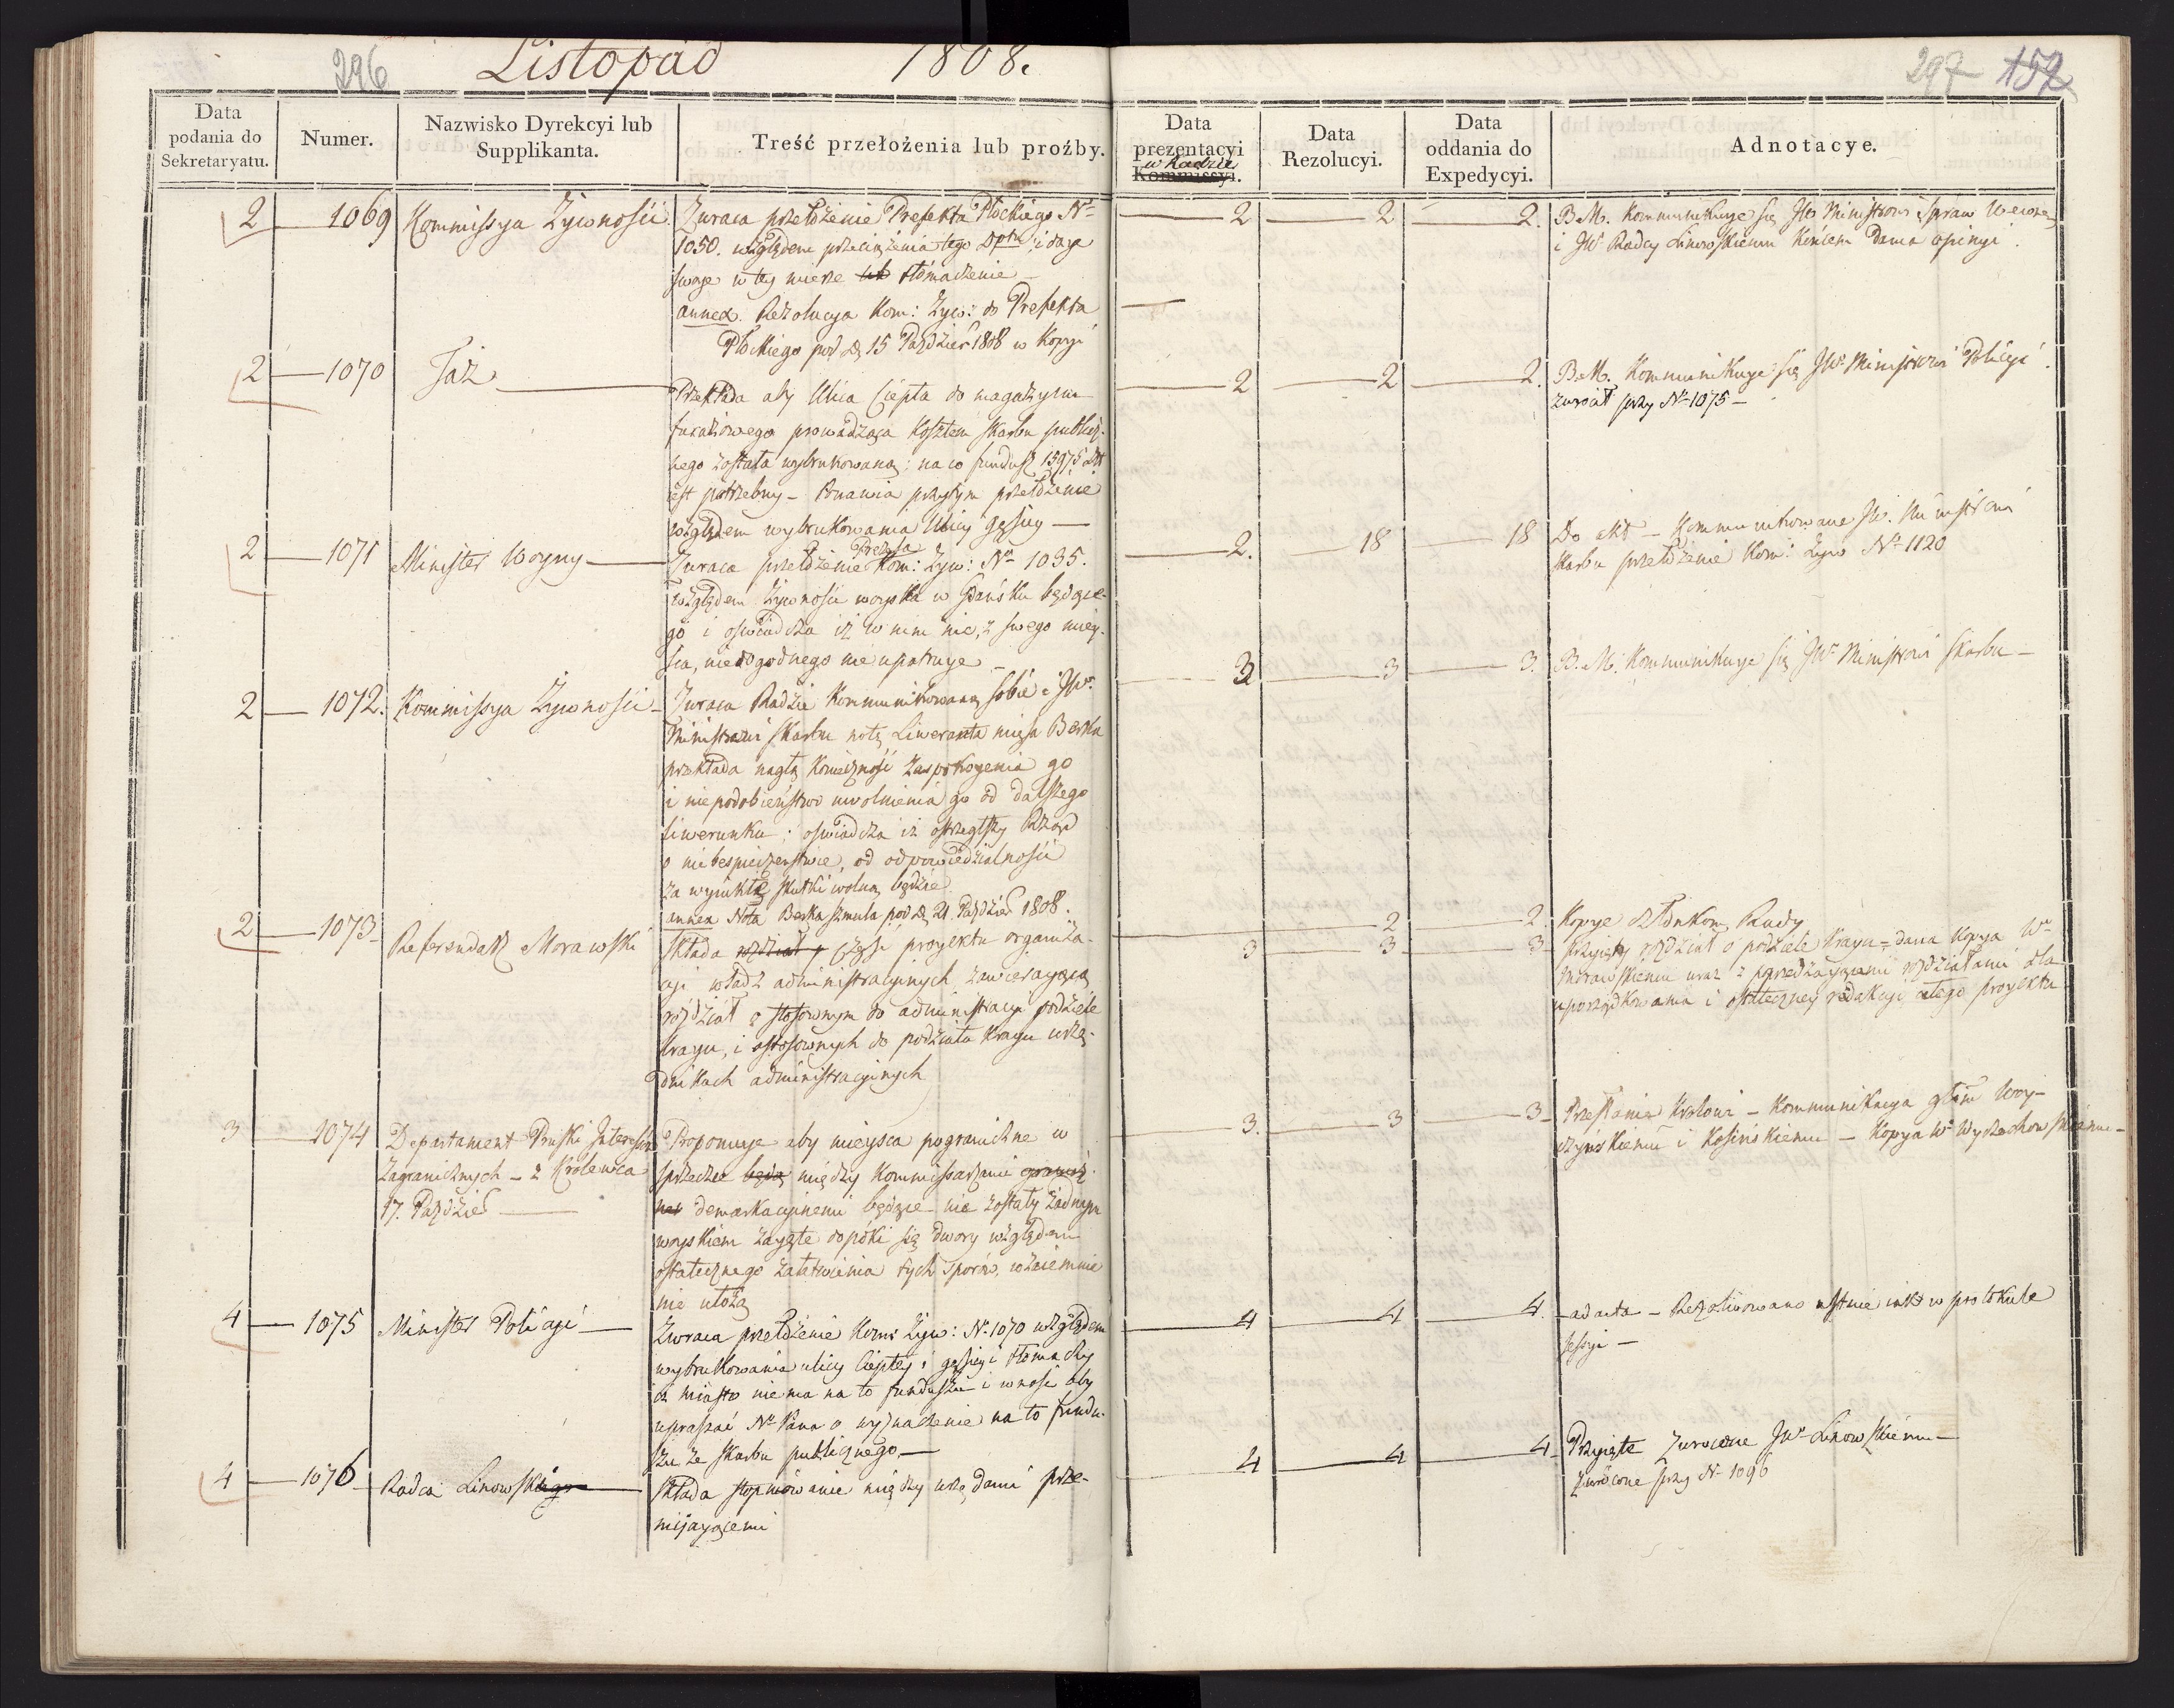 296 Listopad 1808.
297 152
Data podania do Sekretaryatu.
Numer.
Nazwisko Dyrekcyi lub Supplikanta.
Treść przełożenia lub proźby.
Data prezentacyi w Radzie Kommissyi.
Data Rezolucyi.
Data oddania do Expedycyi.
Adnotacye.
2 1069 Kommissya Żywnosci
Zwraca przełożenie Prefekta Płockiego Nr
1050. względem przeciążenia tego Dptu i daje
swoje w tej mierze tłómaczenie
annex. Rezolucya Kom: Żyw: do Prefekta
Płockiego pod d. 15 Paździer 1808 w Kopyi
2 2 2.
B.M. Kommunikuje się JW Ministrowi Spraw Wewnę
i JW Radcy Linowskiemu końcem dania opinyi.
2 1070 Taż
Przekłada aby Ulica Ciepła do magazynu
furażowego prowadząca kosztem skarbu publicz-
nego została wybrukowaną; na co fundusz 15975
jest potrzebny - Ponawia przytym przełożenie
względem wybrukowania Ulicy Gęsiey
2 2 2.
B.M. Kommunikuje się JWr Ministrowi Policyi.
zwrócił przy Nr 1075
2 1071 Minister Woyny
Zwraca przełożenie Prezesa Kom: Żyw: Nr 1035.
względem Żywnosci woyska w Gdańsku będące-
go i oswiadcza iż w nim nic, z swego miey-
sca, niedogodnego nie upatruje
2. 18 18
Do akt - Kommunikowane JW. Ministrowi
skarbu przełożenie Kom: Żyw Nr 1120
2 1072. Kommissya Żywnosci
Zwraca Radzie kommunikowaną sobie i JWr
Ministrowi skarbu notę Liweranta mięsa Berka
przekłada nagłą konieczność zaspokojenia go
i niepodobieństwo uwolnienia go od dalszego
liwerunku; oswiadcza iż ostrzegłszy Rząd
o niebespieczenstwie, od odpowiedzialnosci
za wynikłe skutki wolną będzie
annex Nota Berka Szmula pod d. 21 Paździer 1808.
3 3 3.
B.M. Kommunikuje się JWr Ministrowi skarbu
2 1073 Referendarz Morawski
Składa rozdział y część projektu organiza-
cyi władz administracyinych zawierającą
rozdział o stosownym do administracyi podziele
kraju, i o stosownych do podziału kraju urzę-
dnikach administracyinych
2 2.
3 3 3
Kopye członkom Rady
przyięty rozdział o podziele kraju = dana kopya Wr
Morawskiemu wraz z poprzedzającemi rozdziałami dla
uporządkowania i ostateczney redakcyi całego projektu
3 1074 Departament Pruski Interessow
Zagranicznych - z Królewca
17. Paździer
Proponuje aby mieysca pograniczne w
sprzeczce będą między kommissarzami
demarkacyinemi będące nie zostały żadnym
woyskiem zajęte dopóki się dwory względem
ostatecznego załatwienia tych sporów, wzaiemnie
nie ułożą
3. 3 3
Przesłanie Królowi - Kommunikacya Woy-
czyńskiemu i Kosińskiemu - Kopya Wr Wyczechowskiemu
4 1075 Minister Policyi
Zwraca przełożenie Kom: Żyw: Nr 1070 względem
wybrukowania ulicy Ciepłey i gęsiey i tłómaczy
iż miasto nie ma na to funduszu i wnosi aby
upraszać Nr Pana o wyznaczenie na to fundu-
szu ze skarbu publicznego.
4 4 4.
ad acta - Rezolwowano ustnie iak w protokule
sessyi
4 1076 Radca Linowski
Składa stopniowanie między urzędami prze-
mijającemi
4 4 4
Przyięte zwrócone JWr Linowskiemu
zwrócone przy Nr 1096